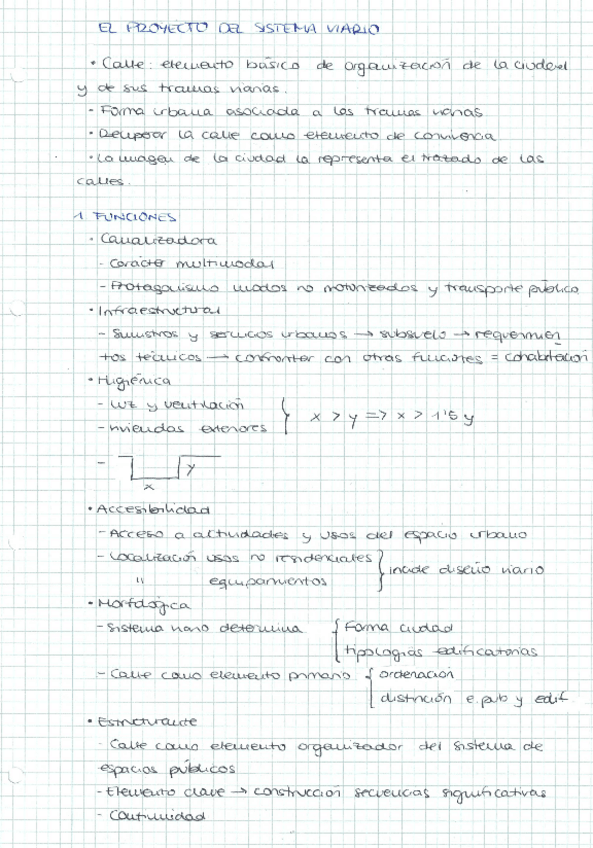 EL PROYECTO DEL SISTEMA VIARIO
• Calle: elemento básico de organización de la ciudad
y de sus tramas viarias.
- Forma urbana asociada a las tramas viarias
• Recuperar la calle como elemento de convivencia
• La imagen de la ciudad la representa el tratado de las
calles.
1. FUNCIONES
• Canalizadora
- Carácter multimodal
- Protagonismo modos no motorizados y transporte público
• Infraestructural
- Suministros y servicios urbanos → subsuelo → requerimien
tos técnicos → confrontar con otras funciones = cohabitación
• Higiénica
- Luz y ventilación
- viviendas exteriores } x > y => x > 1'5 y
- y
x
• Accesibilidad
- Acceso a actividades y usos del espacio urbano
- Localización usos no residenciales
" equipamientos } incide diseño viario
• Morfológica
- Sistema viario determina { Forma ciudad
tipologías edificatorias
- Calle como elemento primario { ordenación
distinción e.pub y edif
• Estructurante
- Calle como elemento organizador del sistema de
espacios públicos
- Elemento clave → construcción secuencias significativas
- Continuidad